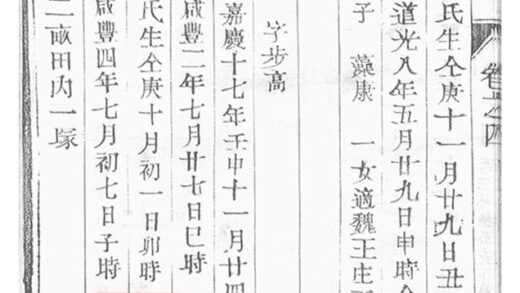 卷之四
氏生仝庚十一月廿九日丑
道光八年五月廿九日申時
子 藻康 一女適魏王庄
字步高
嘉慶十七年壬申十一月廿四
咸豐二年七月廿七日巳時
氏生仝庚十月初一日卯時
咸豐四年七月初七日子時
二畝田内一塚